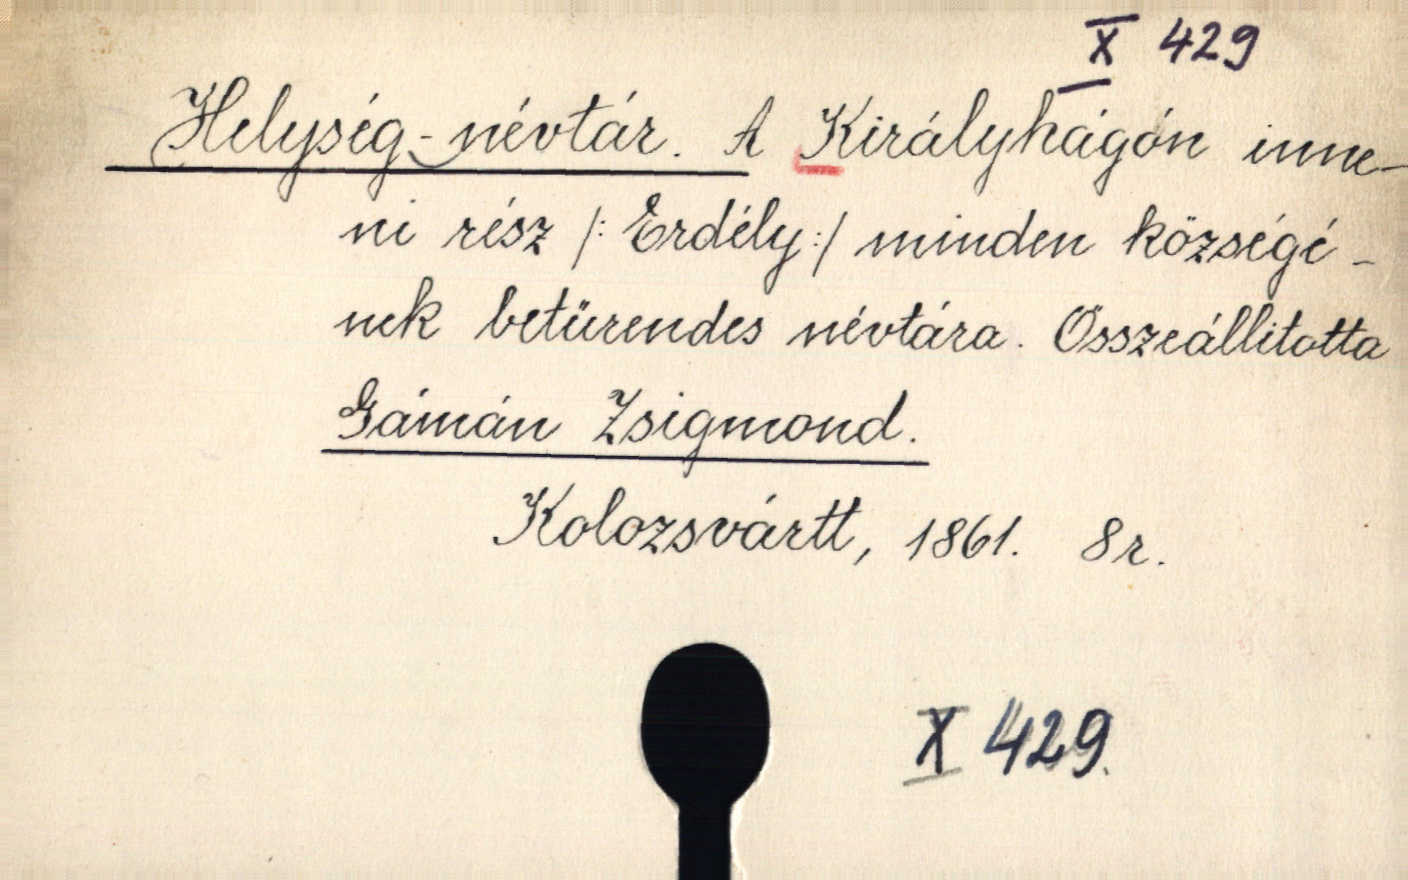 X 429
Helység-névtár. A Királyhágón inne-
ni rész /: Erdély :/ minden községé-
nek betürendes névtára. Összeállitotta
Gámán Zsigmond.
Kolozsvártt, 1861. 8r.
X 429.